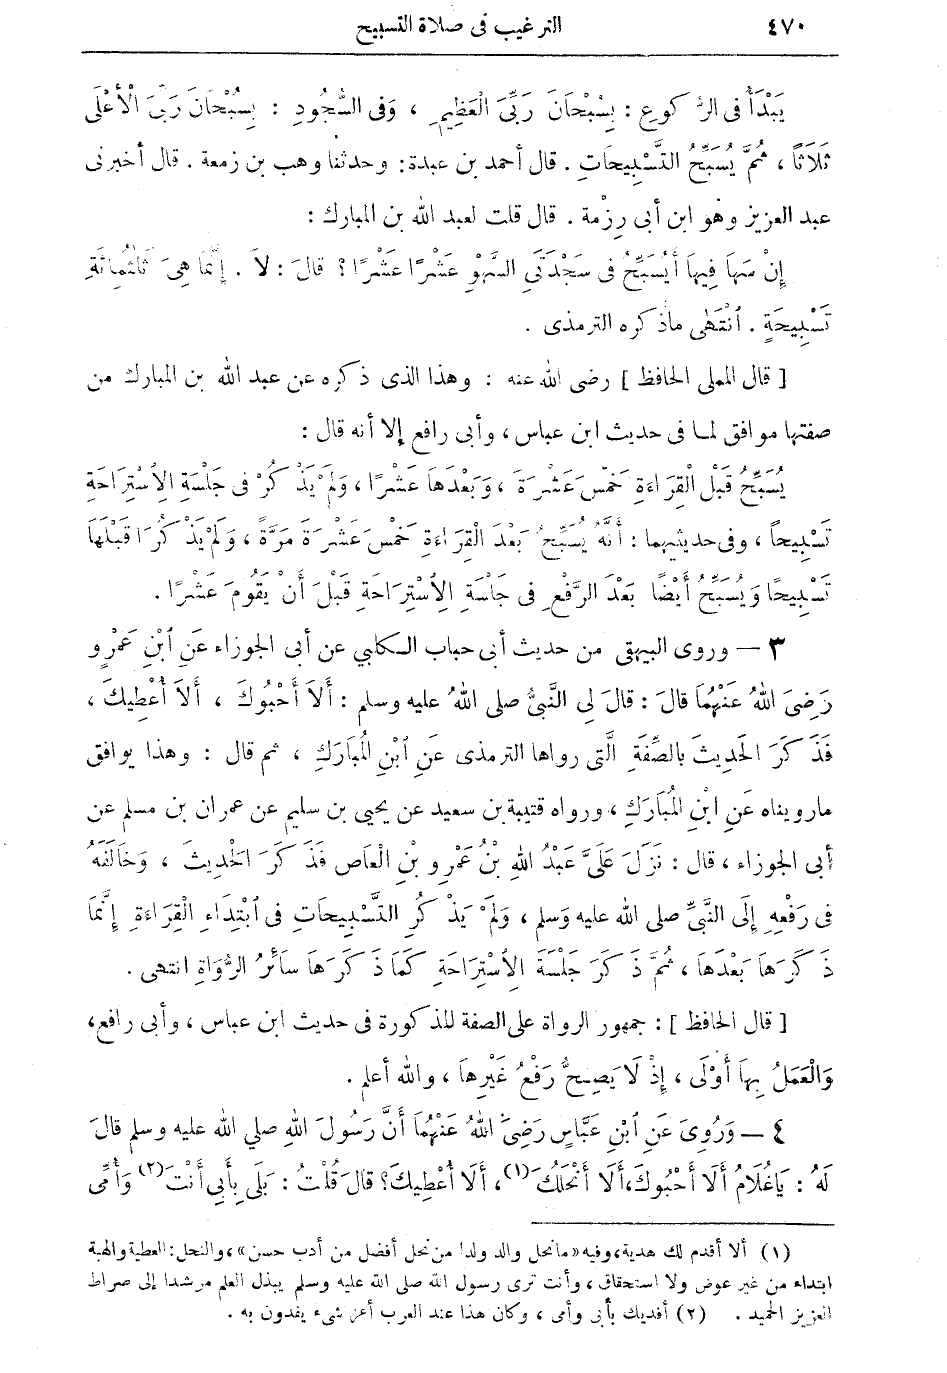 ٤٧٠
الترغيب فى صلاة التسبيح
يَبْدَأُ فى الرُّكوعِ : بِسُبْحَانَ رَبِّىَ الْعَظِيمِ ، وَفى السُّجُودِ : بِسُبْحَانَ رَبِّىَ الْأَعْلَى
ثَلَاثاً ، ثُمَّ يُسَبِّحُ التَّسْبِيحَاتِ . قال أحمد بن عبدة: وحدثنا وهب بن زمعة . قال أخبرنى
عبد العزيز وهو ابن أبى رِزْمة . قال قلت لعبد الله بن المبارك :
إِنْ سَهَا فِيهَا أَيُسَبِّحُ فى سَجْدَتَىِ السَّهْوِ عَشْرًا عَشْرًا ؟ قالَ : لاَ . إِنَّمَا هِىَ ثَلَثُمِائَةِ
تَسْبِيحَةٍ . ٱنْتَهَى ماذكره الترمذى .
[ قال المملى الحافظ ] رضى الله عنه : وهذا الذى ذكره عن عبد الله بن المبارك من
صفتها موافق لمـا فى حديث ابن عباس ، وأبى رافع إلا أنه قال :
يُسَبِّحُ قَبْلَ الْقِرَاءَةِ خَمْسَ عَشْرَةَ ، وَبَعْدَهَا عَشْرًا ، وَلَمْ يَذْكُرْ فى جَلْسَةِ الِاسْتِرَاحَةِ
تَسْبِيحاً ، وفى حديثهما : أَنَّهُ يُسَبِّحُ بَعْدَ الْقِرَاءَةِ خَمْسَ عَشْرَةَ مَرَّةً ، وَلَمْ يَذْكُرَا قَبْلَهَا
تَسْبِيحًا وَيُسَبِّحُ أَيْضًا بَعْدَ الرَّفْعِ فى جَلْسَةِ الِاسْتِرَاحَةِ قَبْلَ أَنْ يَقُومَ عَشْرًا .
٣ — وروى البيهقى من حديث أبى حباب الـكلبي عن أبى الجوزاء عَنِ ٱبْنِ عَمْرٍو
رَضِىَ اللهُ عَنْهُمَا قالَ : قالَ لِى النَّبىُّ صلى اللهُ عليه وسلم : أَلاَ أَحْبُوكَ ، أَلاَ أُعْطِيكَ ،
فَذَكَرَ الْحَدِيثَ بالصِّفَةِ الَّتى رواها الترمذى عَنِ ٱبْنِ الْمُبَارَكِ ، ثم قال : وهذا يوافق
مارويناه عَنِ ابْنِ الْمُبَارَكِ ، ورواه قتيبة بن سعيد عن يحيى بن سليم عن عمران بن مسلم عن
أبى الجوزاء ، قال : نَزَلَ عَلَىَّ عَبْدُ اللهِ بْنُ عَمْرِو بْنِ الْعَاصِ فَذَكَرَ الْحَدِيثَ ، وَخَالَفَهُ
فى رَفْعِهِ إِلَى النَّبىِّ صلى الله عليه وَسلم ، وَلَمْ يَذْكُرِ التَّسْبِيحَاتِ فى ٱبْتِدَاءِ الْقِرَاءَةِ إِنَّمَا
ذَكَرَهَا بَعْدَهَا ، ثُمَّ ذَكَرَ جَلْسَةَ الِاسْتِرَاحَةِ كَمَا ذَكَرَهَا سَائِرُ الرُّوَاةِ انتهى .
[ قال الحافظ ] : جمهور الرواة على الصفة المذكورة فى حديث ابن عباس ، وأبى رافع،
وَالْعَمَلُ بِهَا أَوْلَى ، إِذْ لاَ يَصِحُّ رَفْعُ غَيْرِهَا ، والله أعلم .
٤ — وَرُوِىَ عَنِ ٱبْنِ عَبَّاسٍ رَضِىَ اللهُ عَنْهُمَا أَنَّ رَسُولَ اللهِ صلي الله عليه وسلم قالَ
لَهُ : يَاغُلَامُ أَلَا أَحْبُوكَ،أَلَا أَنْحَلُكَ(١)، أَلَا أُعْطِيكَ؟ قالَ قُلْتُ : بَلَى بِأَبِى أَنْتَ(٢) وَأُمِّى
(١) ألا أقدم لك هدية،وفيه«مانحل والد ولدا من نحل أفضل من أدب حسن»،والنحل: العطية والهبة
ابتداء من غير عوض ولا استحقاق ، وأنت ترى رسول الله صلى الله عليه وسلم يبذل العلم مرشدا إلى صراط
العزيز الحميد . (٢) أفديك بأبى وأمى ، وكان هذا عند العرب أعز شىء يفدون به .